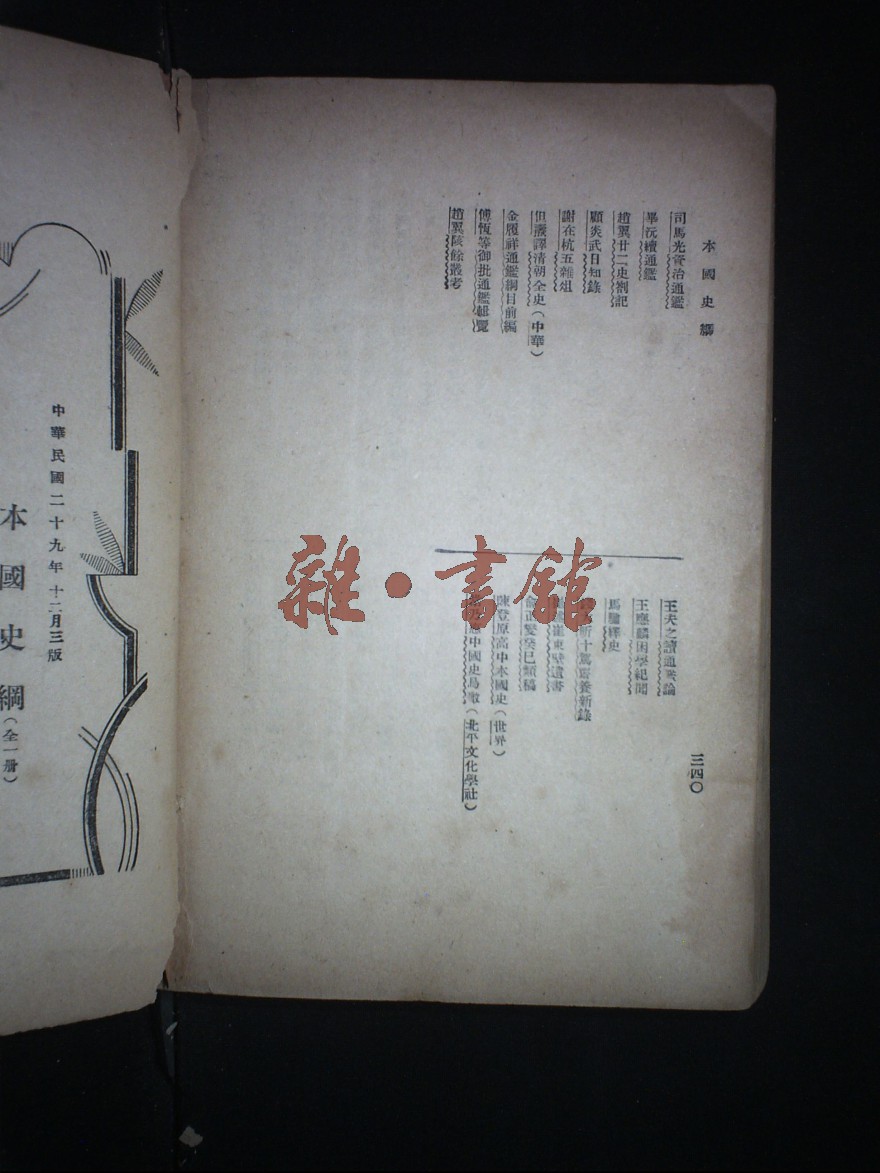 本國史綱
三四〇
司馬光資治通鑑
畢沅續通鑑
趙翼廿二史劄記
顧炎武日知錄
謝在杭五雜俎
但燾譯清朝全史(中華)
金履祥通鑑綱目前編
傅恆等御批通鑑輯覽
趙翼陔餘叢考
王夫之讀通鑑論
王應麟困學紀聞
馬驌繹史
昕十駕齋養新錄
崔東壁遺書
俞正燮癸巳類稿
陳登原高中本國史(世界)
中國史鳥瞰(北平文化學社)
中華民國二十九年十二月三版
本國史綱(全一册)
雜·書館